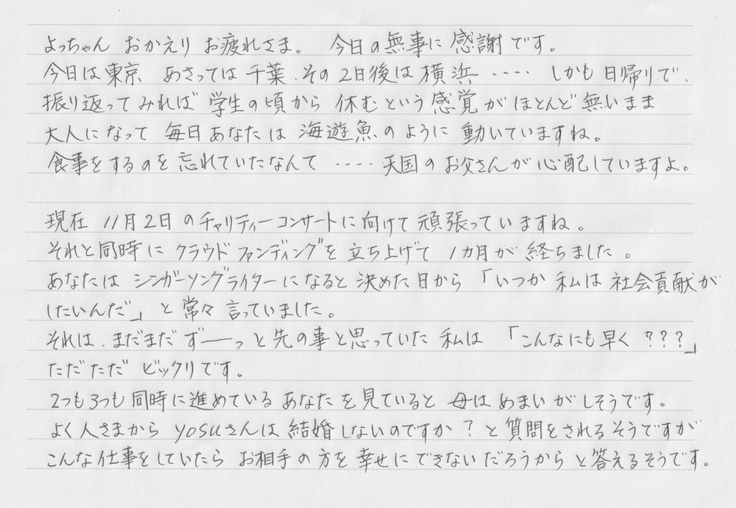 よっちゃん おかえり お疲れさま。 今日の無事に 感謝です。
今日は東京 あさっては 千葉、その2日後は 横浜 ‥‥ しかも 日帰りで、
振り返ってみれば 学生の頃から 休むという感覚が ほとんど無いまま
大人になって 毎日あなたは 海遊魚のように 動いていますね。
食事をするのを忘れていたなんて ‥‥ 天国のお父さんが 心配していますよ。
現在 11月2日のチャリティーコンサートに向けて 頑張っていますね。
それと同時に クラウドファンディングを立ち上げて 1ヵ月が 経ちました。
あなたは シンガーソングライターになると 決めた日から 「いつか 私は 社会貢献が
したいんだ」と 常々 言っていました。
それは、まだまだ ずーっと先の事と思っていた 私は 「こんなにも早く???」
ただただ ビックリです。
2つも3つも同時に進めている あなたを見ていると 母は めまいが しそうです。
よく人さまから yosuさんは 結婚しないのですか? と 質問をされるそうですが
こんな仕事をしていたら お相手の方を 幸せにできないだろうから と答えるそうです。